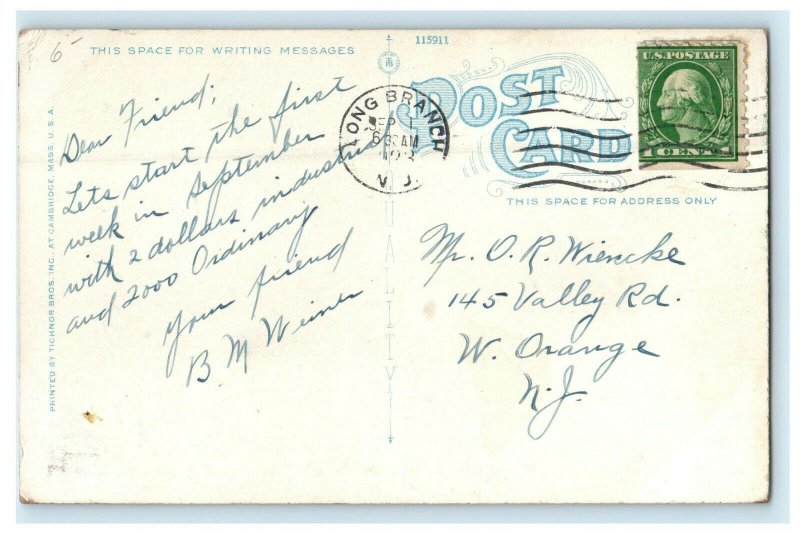 6-
THIS SPACE FOR WRITING MESSAGES
115911
POST
CARD
U.S. POSTAGE
1 CENT 1
LONG BRANCH
SEP
AM
N. J.
THIS SPACE FOR ADDRESS ONLY
Dear Friend;
Lets start the first
week in September
with 2 dollars industrial
and 2000 Ordinary
your friend
B M Weiner
Mr. O. R. Wiencke
145 Valley Rd.
W. Orange
N. J.
QUALITY
PRINTED BY TICHNOR BROS. INC., AT CAMBRIDGE, MASS. U. S. A.